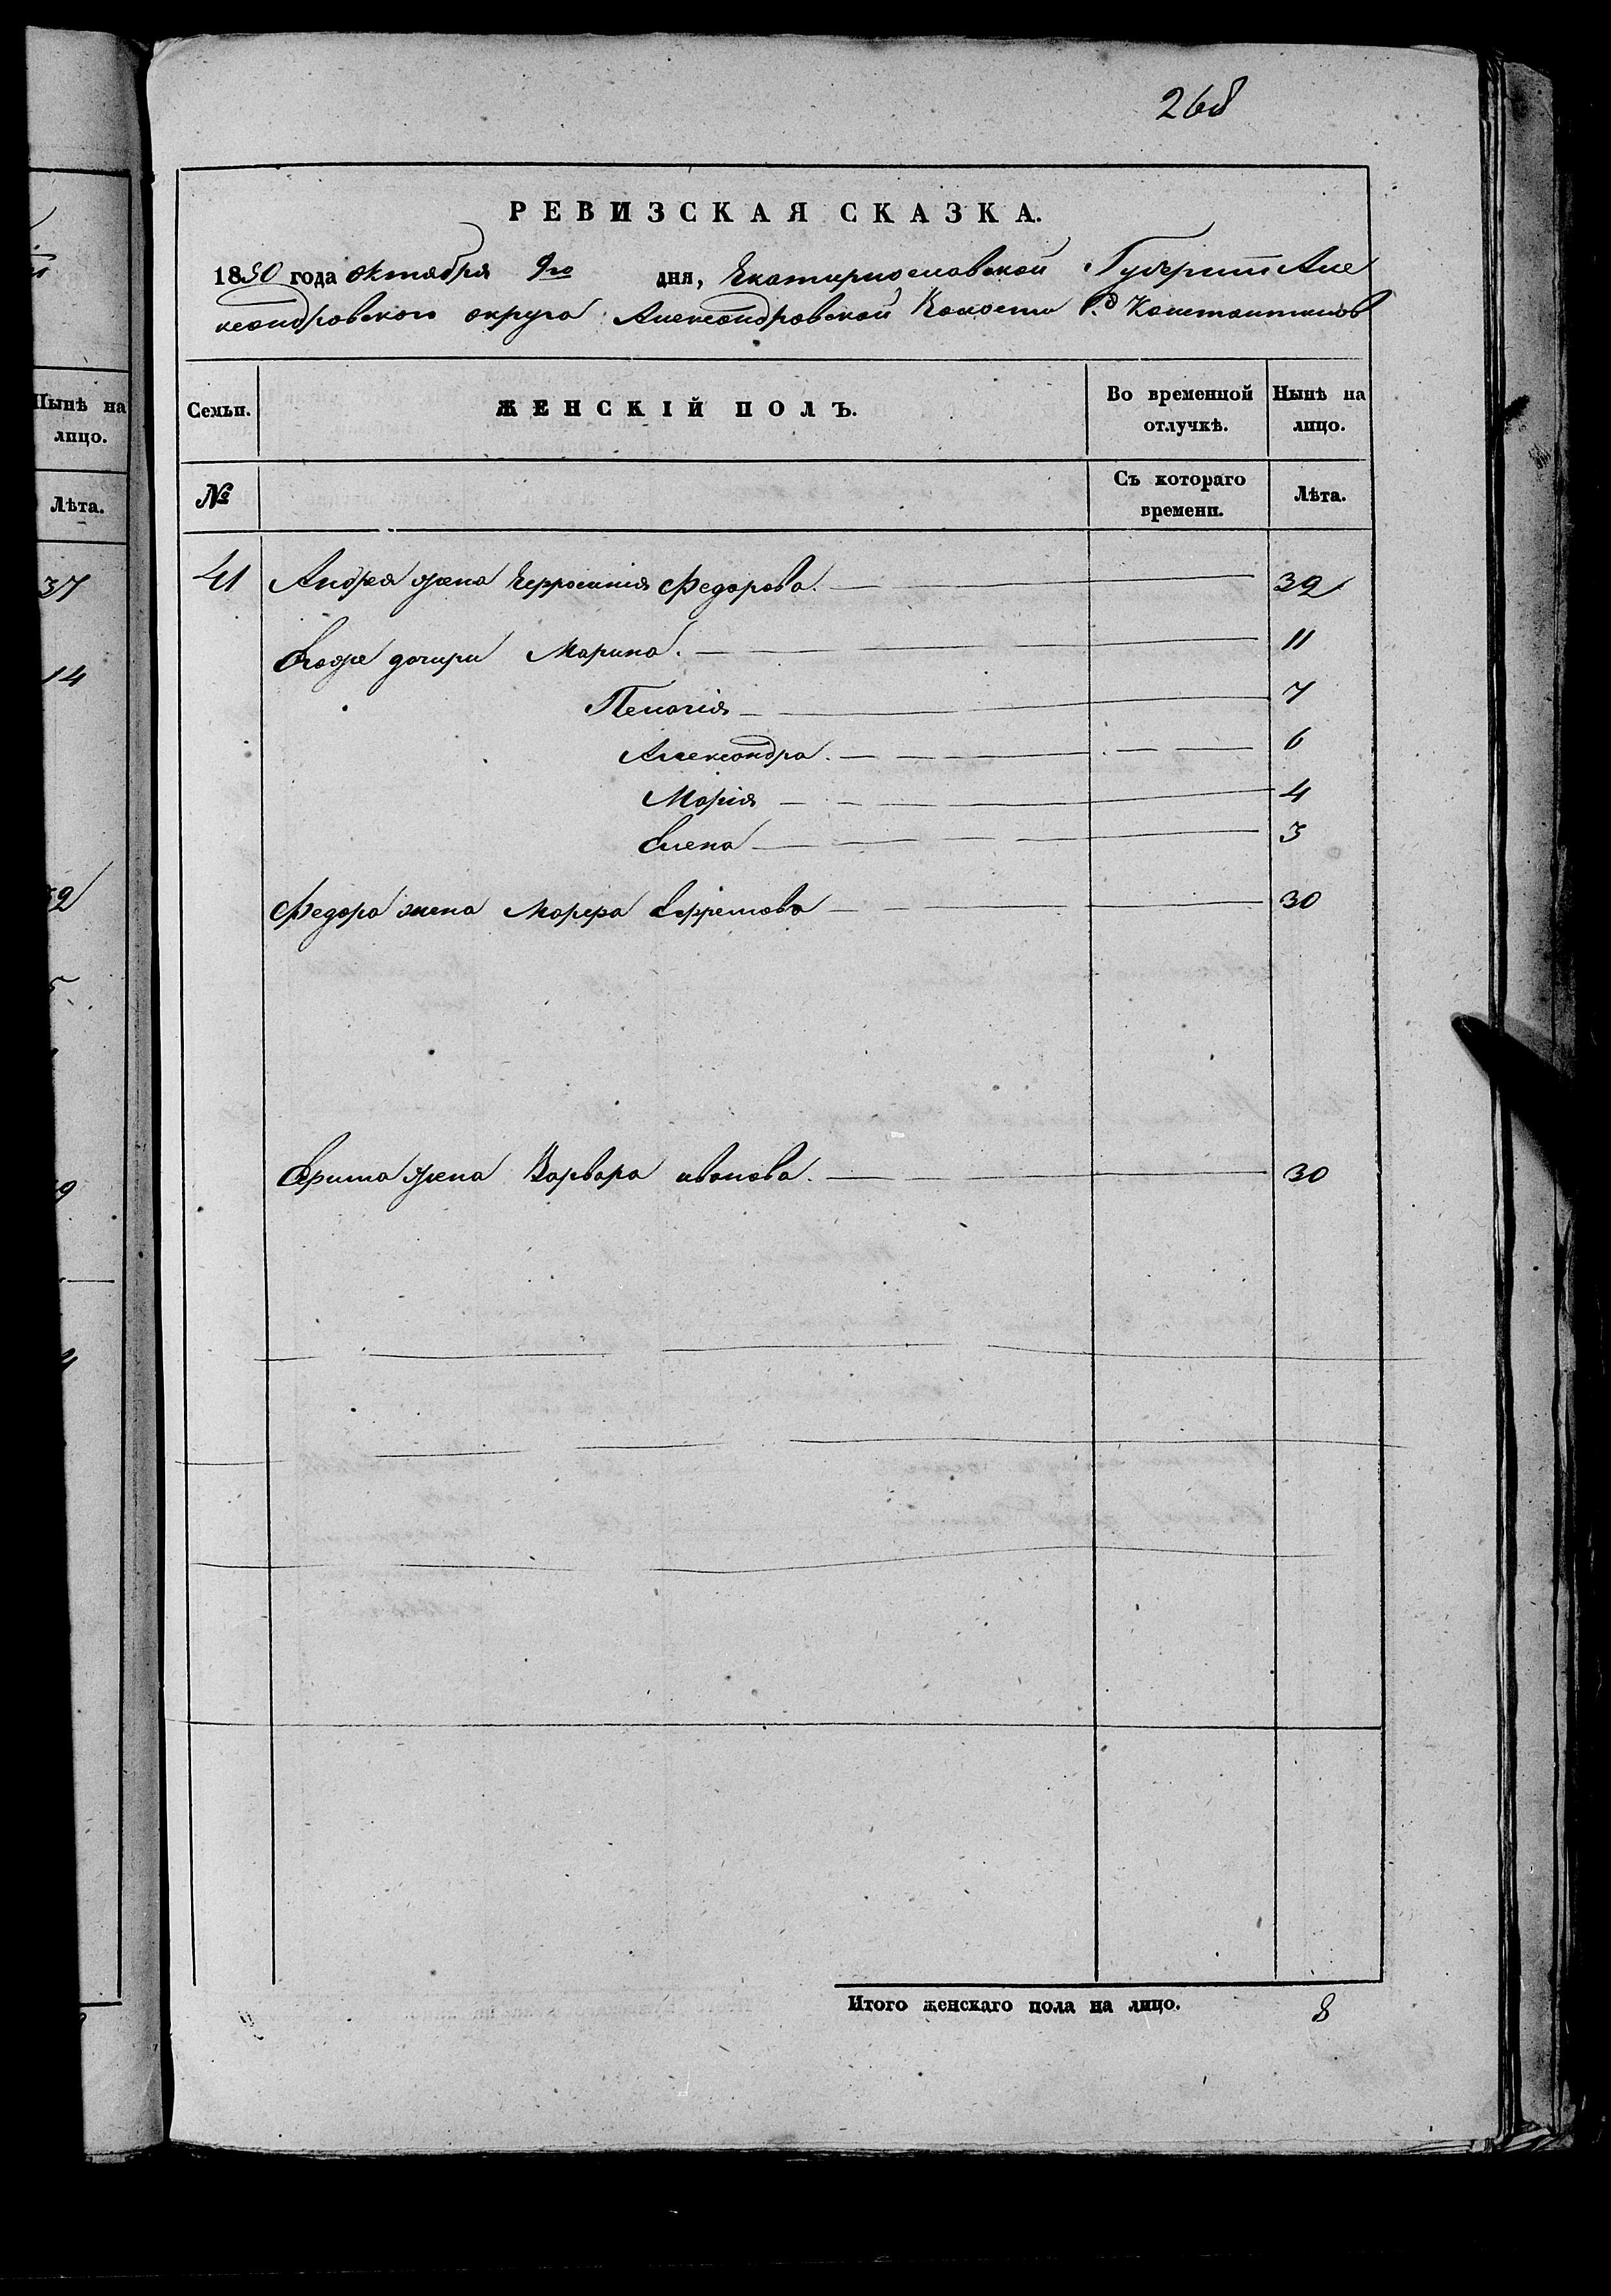 268
РЕВИЗСКАЯ СКАЗКА.
1850 года октября 9го дня, Екатиринославской Губернии Але
ксандровского округа Александровской Волости
Семьи. ЖЕНСКІЙ ПОЛЪ. Во временной отлучкѣ. Нынѣ на лицо.
№ Съ котораго времени. Лѣта.
41 Андрея жена Ефросинія Федорова. 39
Егоже дочири Марина. 11
Пелагія 7
Александра. 6
Марія 4
Елена 3
Федора жена Марфа Ефремова 30
Ефима жена Варвара иванова. 30
Итого женскаго пола на лицо. 8
Нынѣ на
лицо.
Лѣта.
37
14